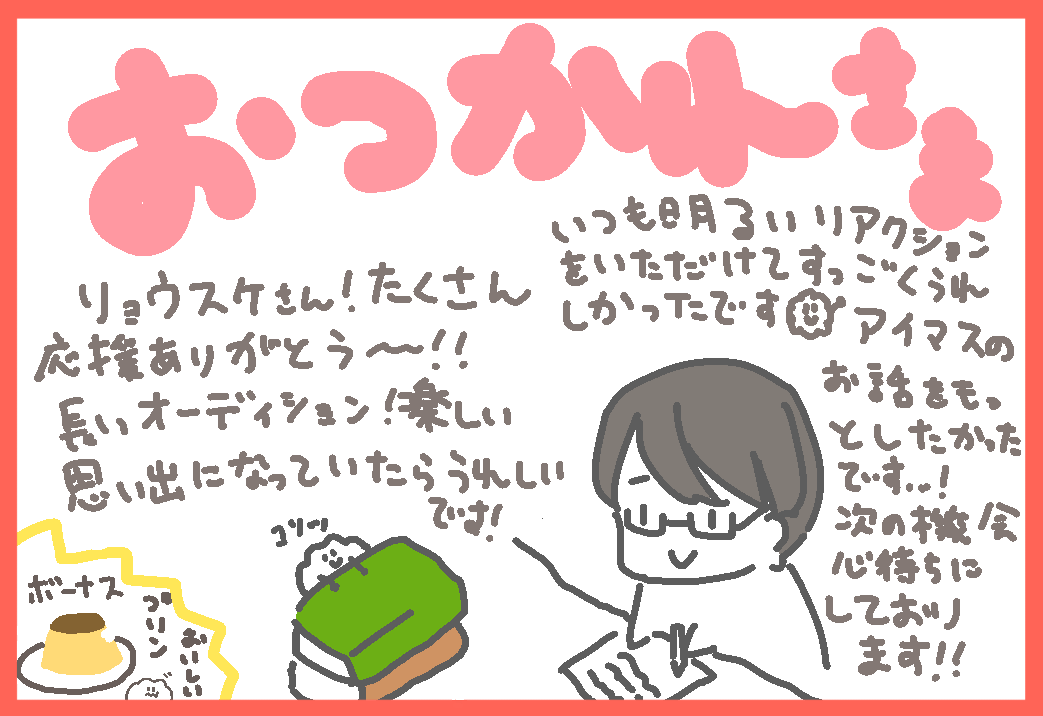 おつかれさま
リョウスケさん!たくさん
応援ありがとう〜!!
長いオーディション!楽しい
思い出になっていたらうれしい
です!
いつも明るいリアクション
をいただけてすっごくうれ
しかったです
アイマスの
お話をもっ
としたかった
です..!
次の機会
心待ちに
しており
ます!!
コソッ
ボーナス
プリン
おいしい